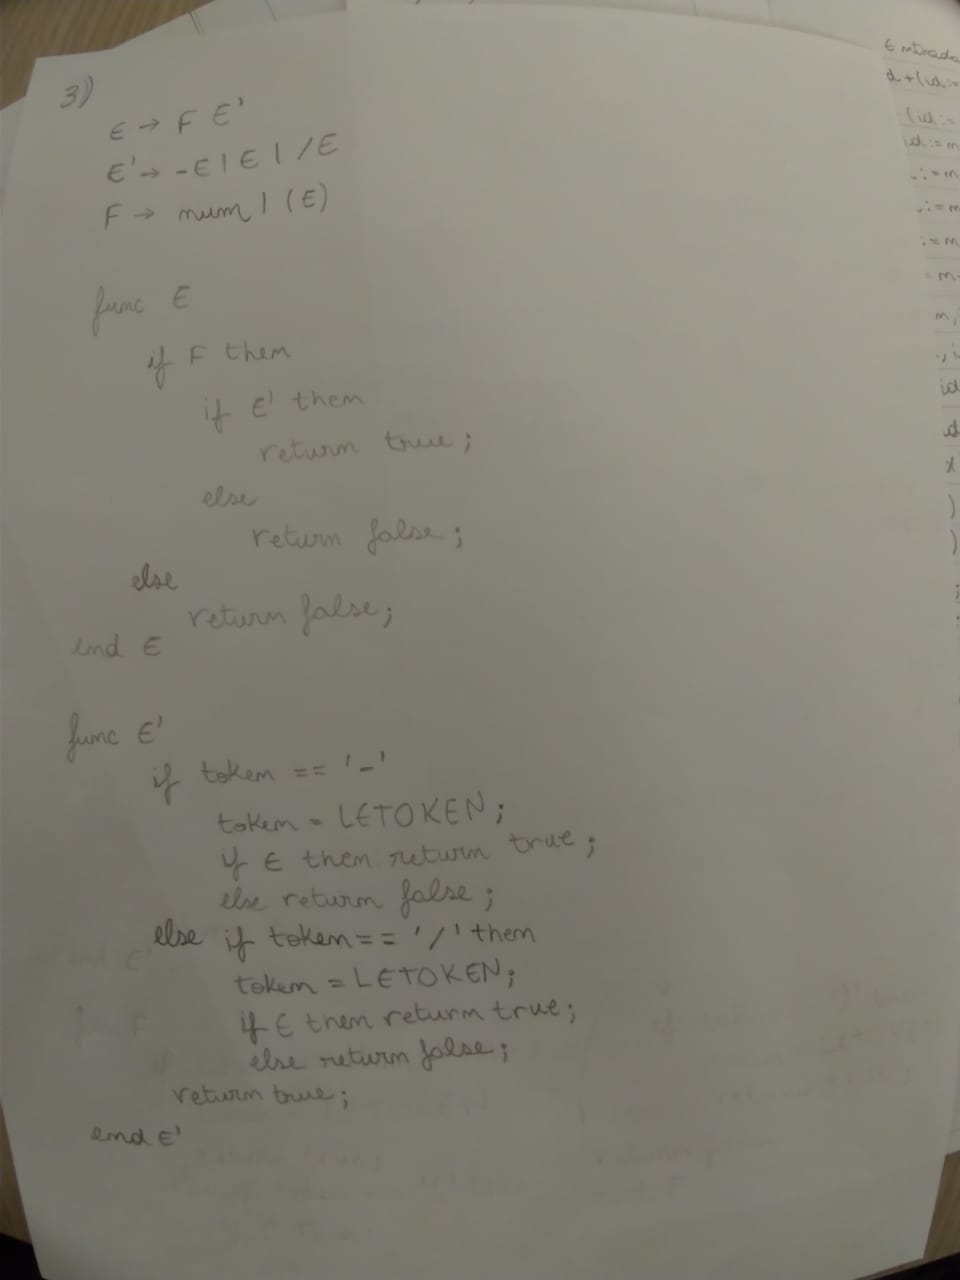 3)
E → F E'
E' → -E | E | /E
F → num | (E)
func E
if F then
if E' then
return true;
else
return false;
else
return false;
end E
func E'
if token == '-'
token = LETOKEN;
if E then return true;
else return false;
else if token == '/' then
token = LETOKEN;
if E then return true;
else return false;
return true;
end E'
Entrada
d+(id:=
(id:=
id:=m
.:=m
.:=m
:=m
=m
m,
id
d
)
)